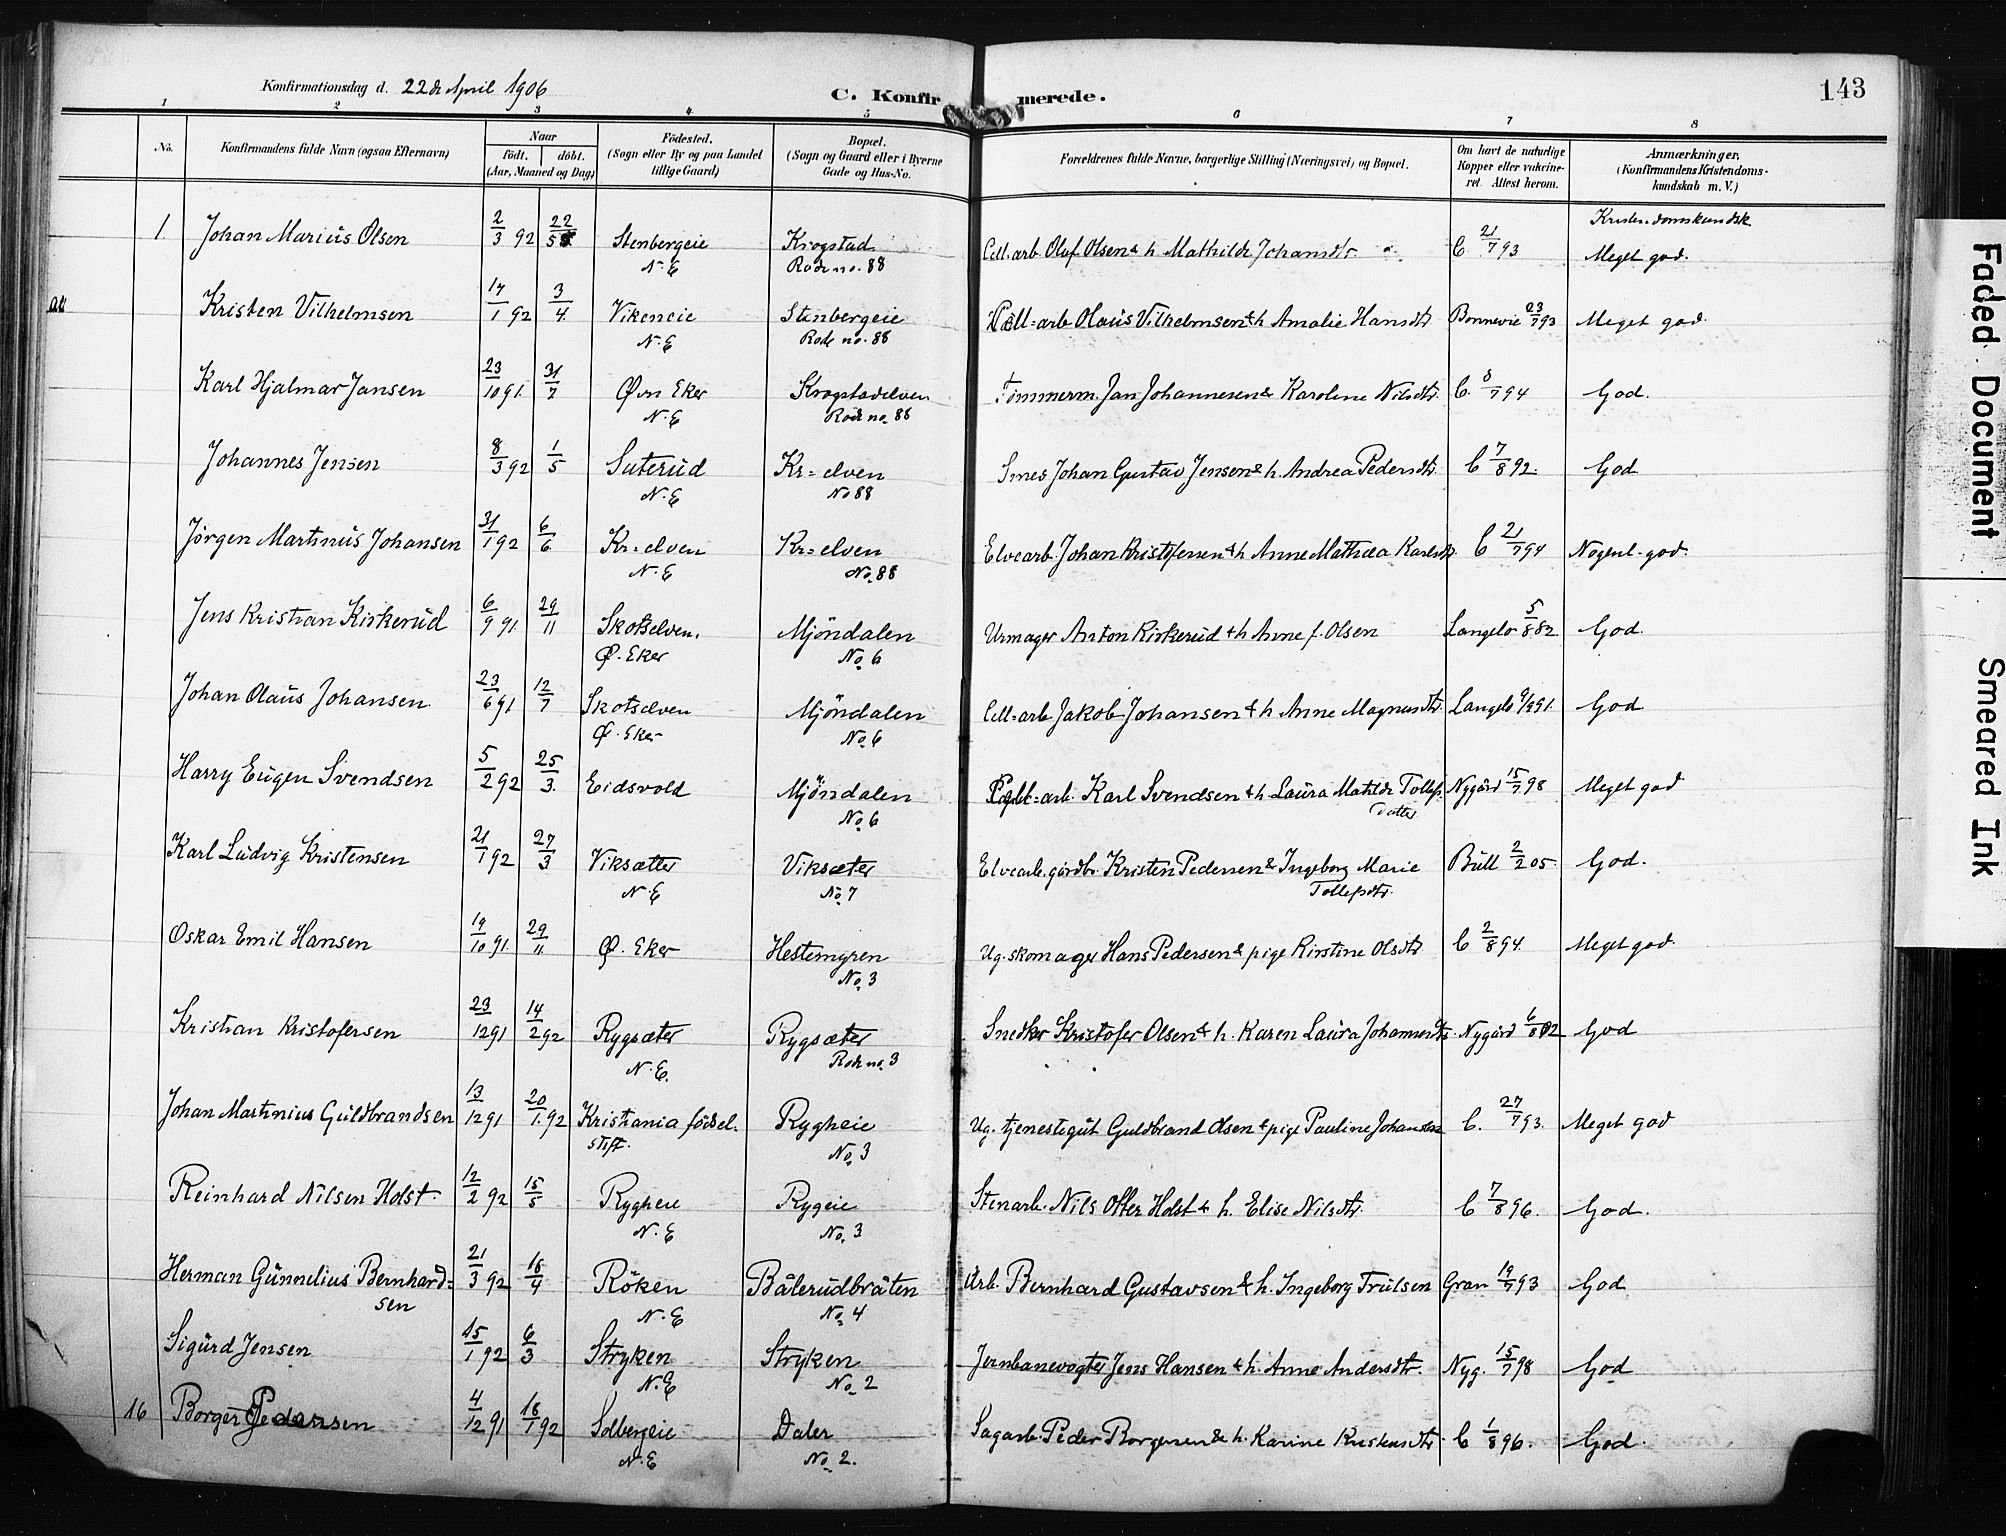 Konfirmationsdag d. 22de April 1906
C. Konfirmerede.
143
1 2 3 4 5 6 7 8
No.
Konfirmandens fulde Navn (ogsaa Efternavn)
Naar
födt. döbt.
(Aar, Maaned og Dag)
Födested.
(Sogn eller By og paa Landet
tillige Gaard)
Bopæl.
(Sogn og Gaard eller i Byerne
Gade og Hus-No.
Forældrenes fulde Navne, borgerlige Stilling (Næringsvei) og Bopæl.
Om havt de naturlige
Kopper eller vakcine-
ret. Attest herom.
Anmærkninger,
(Konfirmandens Kristendoms-
kundskab m. V.)
Kristendomskundsk
1 Johan Marius Olsen 2/3 92 22/5 Stenbergeie Krogstad Cell.arb. Oluf Olsen & h Mathilde Johansdtr C. 21/7 93 Meget god.
N. E Rode no. 88
Kristen Vilhelmsen 17/1 92 3/4 Vikeneie Stenbergeie Cell=arb Olaus Vilhelmsen & h Amalie Hansdtr Bonnevie 23/7 93 Meget god.
N. E Rode no. 88
Karl Hjalmar Jansen 23/10 91. 31/7 Øvn Eker Krogstadelven Tømmerm. Jan Johannesen & Karoline Nilsdtr. C. 8/7 94 God.
N. E Rode no. 88
Johannes Jensen 8/3 92 1/5 Suterud Kr=elven Smed Johan Gustav Jensen & h. Andrea Pedersdtr. C 7/8 92. God
N. E No 88
Jørgen Martinus Johansen 31/1 92 6/6 Kr=elven Kr=elven Elvearb. Johan Kristofersen & h Anne Mathea Karlsdtr. C 21/7 94 Nogenl-god.
N. E No. 88
Jens Kristian Kirkerud 6/9 91 29/11 Skotselven. Mjöndalen Urmager Anton Kirkerud & h Anne f. Olsen Langelo 5/8 82 God.
Ø. Eker No. 6
Johan Olaus Johansen 23/6 91 12/7 Skotselven Mjöndalen Cell=arb Jakob Johansen & h Anne Magnusdtr. Langelo 9/8 91. God
Ø. Eker No. 6
Harry Eugen Svendsen 5/2 92 25/3. Eidsvold Mjöndalen arb. Karl Svendsen & h Laura Matilde Tollefs Nygård 15/7 98 Meget god
datter No. 6
Karl Ludvig Kristensen 21/1 92 27/3 Viksætter Viksæter Elvearb. gårdbr. Kristen Pedersen & Ingeborg Marie Bull 2/2 05. God.
N. E No. 7 Tollefsdtr.
Oskar Emil Hansen 19/10 91. 29/11 Ø. Eker Hestemyren Ug. skomager Hans Pedersen & pige Kirstine Olsdtr C 2/8 94. Meget god.
No. 3
Kristian Kristofersen 23/12 91 14/2 92 Rygsæter Rygsæter Snedker Kristofer Olsen & h. Karen Laura Johannesdtr. Nygård 6/8 02 God
N. E. Rode no. 3
Johan Martinius Guldbrandsen 13/12 91 20/1. 92 Kristiania födsel. Rygheie Ug. tjenestegut Guldbrand Olsen & pige Pauline Johansen C. 27/7 93. Meget god
stift. No. 3
Reinhard Nilsen Holst. 12/2 92 15/5 Rygheie Rygeie Stenarb. Nils Otter Holst & h. Elise Nilsdtr. C 7/8 96. God.
N. E No. 3
Herman Gunnelius Bernhard= 21/3 92 18/4 Röken Bålerudbråten Arb. Bernhard Gustavsen & h. Ingeborg Trulsen Gran 19/7 93 God
sen N. E No. 4
Sigurd Jensen 15/1 92 6/3 Stryken Stryken Jernbanevogter Jens Hansen & h. Anne Andersdtr. Nyg. 15/7 98 God
N. E No. 2
16 Borger Pedersen 4/12 91 18/1 92 Solbergeie Daler Sagarb. Peder Borgersen & h. Karine Kristensdtr C 1/8 96. God.
N. E No. 2.
Faded Document
Smeared Ink